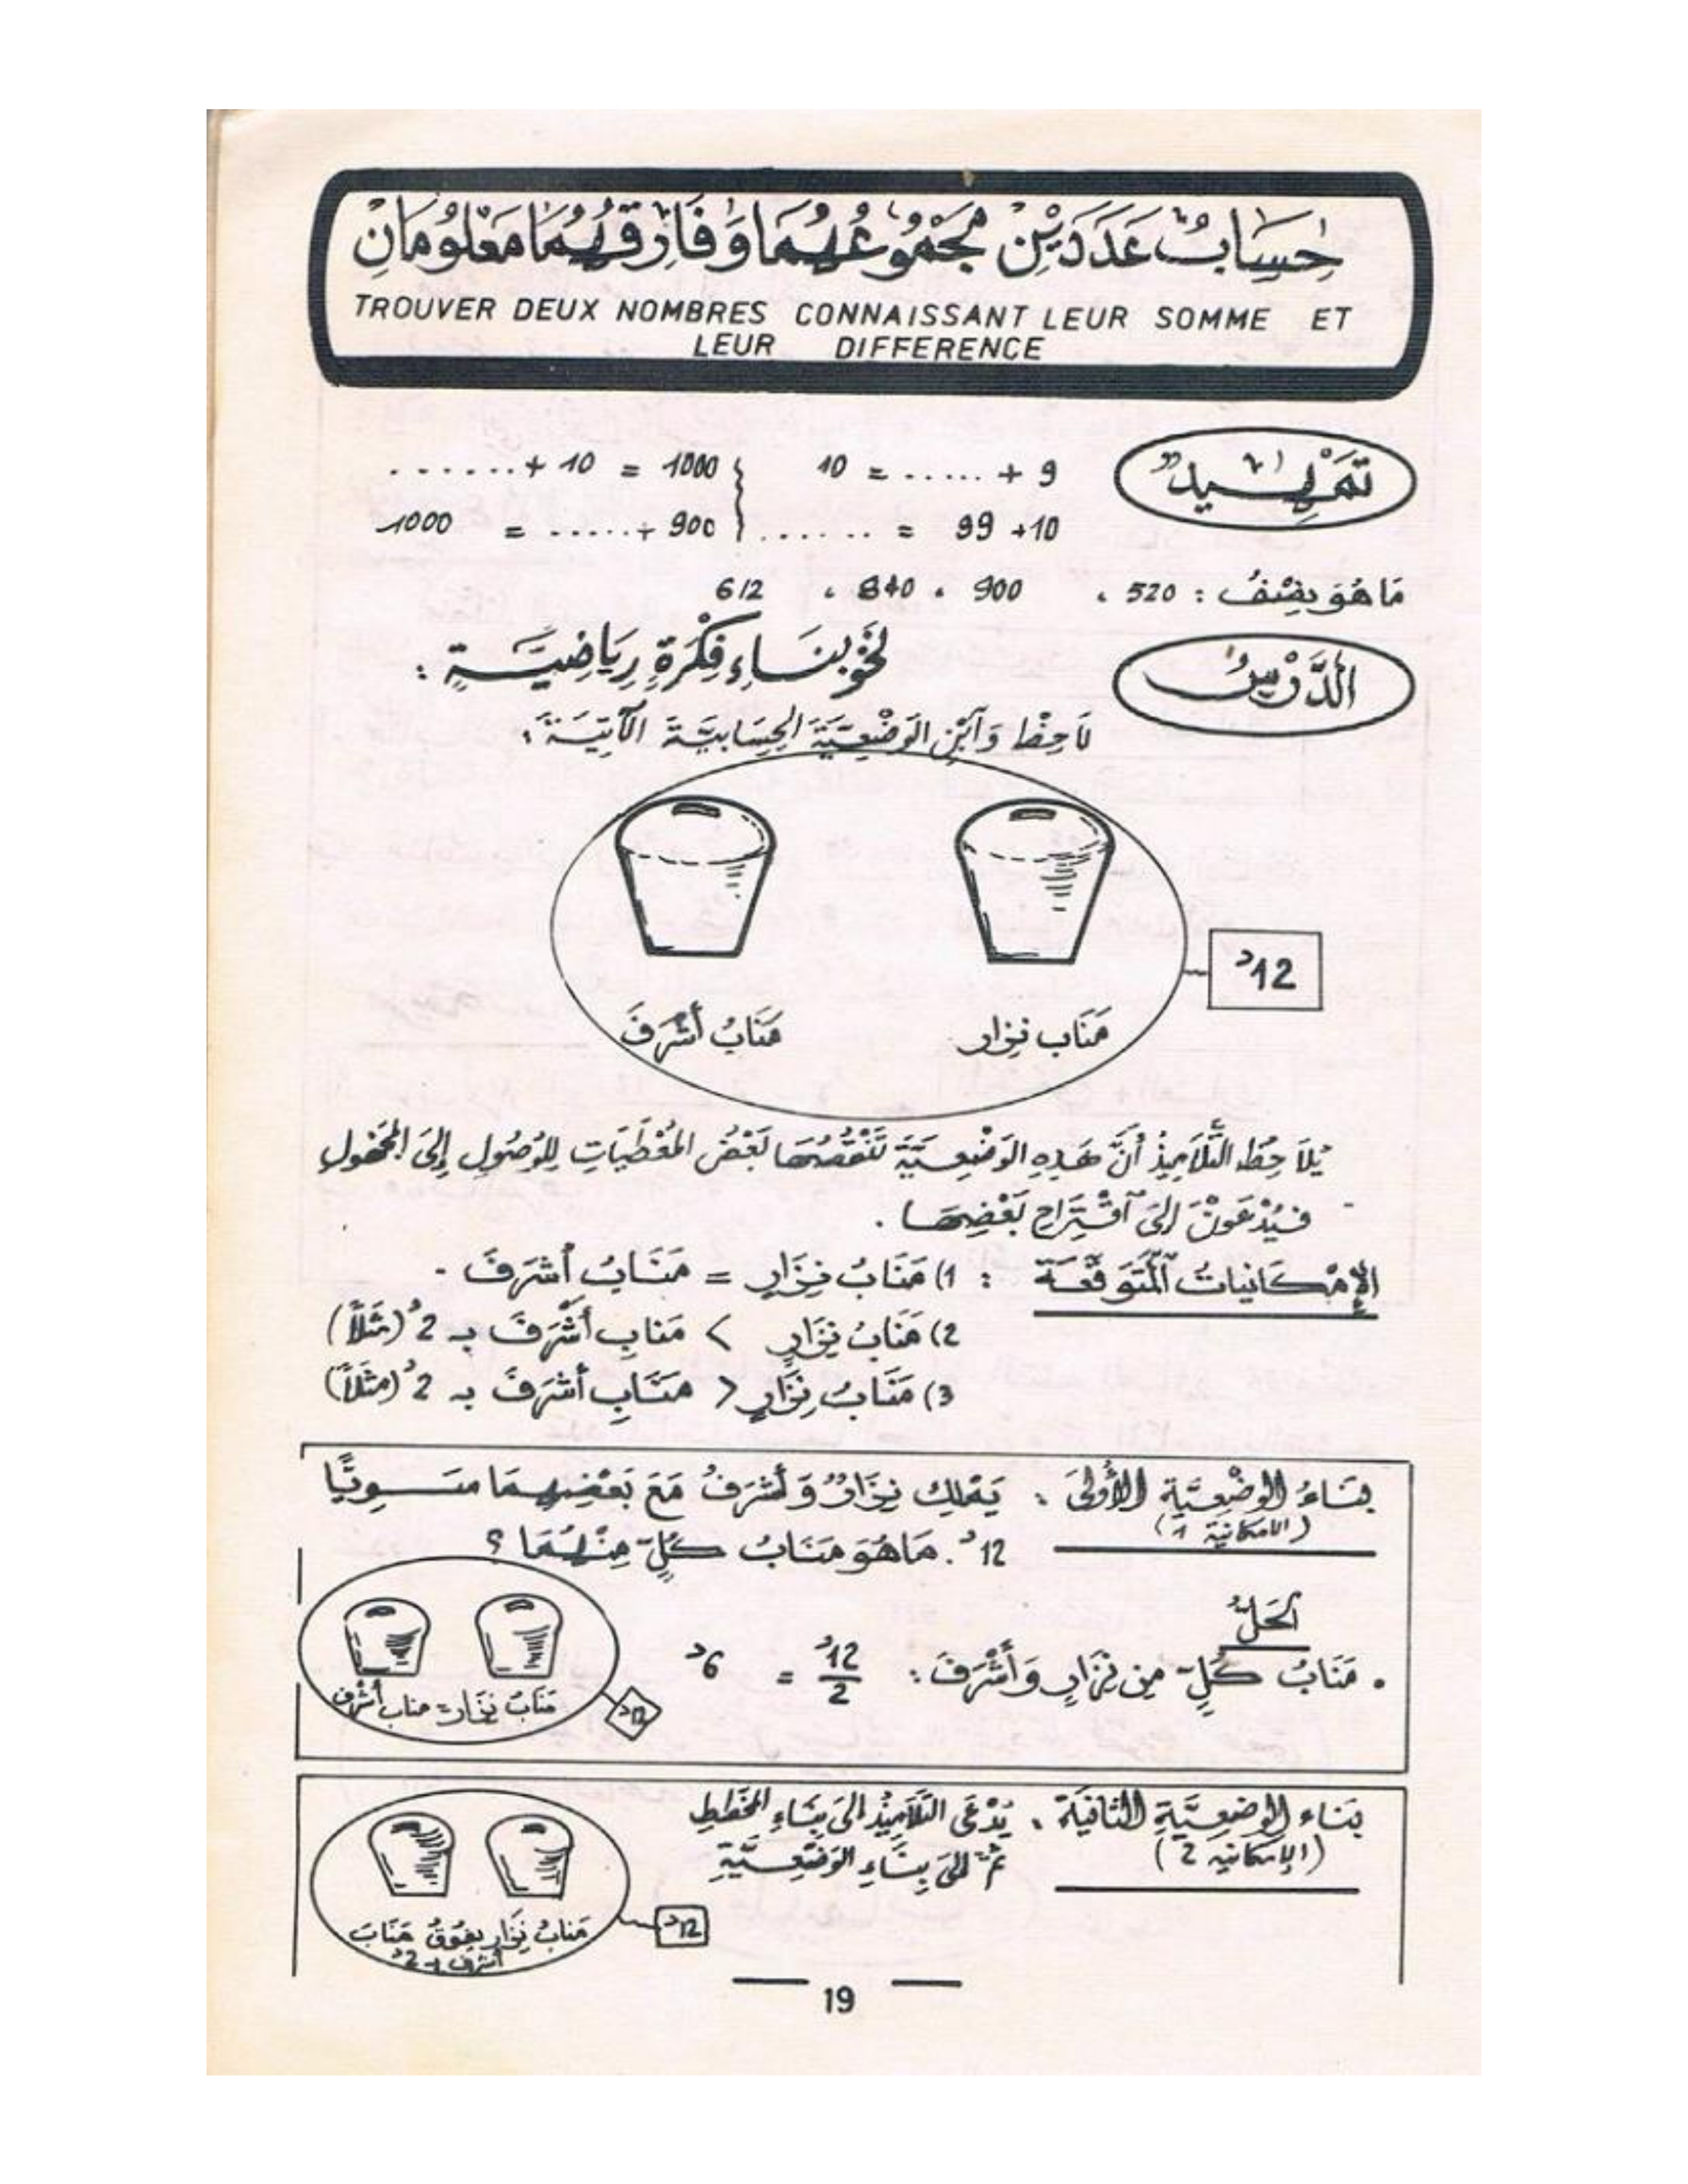 حِسَابُ عَدَدَيْنِ مَجْمُوعُهُمَا وَفَارِقُهُمَا مَعْلُومَانِ
TROUVER DEUX NOMBRES CONNAISSANT LEUR SOMME ET
LEUR DIFFERENCE
تَمْهِيدٌ
10 = ...... + 9
....... + 10 = 1000
....... = 99 + 10
1000 = ...... + 900
مَا هُوَ نِصْفُ : 520 ، 900 ، 840 ، 612
الدَّرْسُ
نَحْوَ بِنَاءِ فِكْرَةٍ رِيَاضِيَّةٍ :
لَاحِظْ وَابْنِ الوَضْعِيَّةَ الحِسَابِيَّةَ الآتِيَةَ :
12د
مَنَابُ نِزَار
مَنَابُ أَشْرَفَ
يُلَاحِظُ التَّلَامِيذُ أَنَّ هَذِهِ الوَضْعِيَّةَ تَنْقُصُهَا بَعْضُ المُعْطَيَاتِ لِلْوُصُولِ إِلَى المَجْهُول
فَيُدْعَوْنَ إِلَى اقْتِرَاحِ بَعْضِهَا .
الإِمْكَانِيَاتُ المُتَوَقَّعَةُ : 1) مَنَابُ نِزَارٍ = مَنَابُ أَشْرَفَ -
2) مَنَابُ نِزَارٍ > مَنَابِ أَشْرَفَ بـ 2د (مَثَلاً)
3) مَنَابُ نِزَارٍ < مَنَابِ أَشْرَفَ بـ 2د (مَثَلاً)
بِنَاءُ الوَضْعِيَّةِ الأُولَى : يَمْلِكُ نِزَارٌ وَأَشْرَفُ مَعَ بَعْضِهِمَا سَوِيًّا
(الامكانية 1)
12د. مَا هُوَ مَنَابُ كُلٍّ مِنْهُمَا ؟
الحَلُّ
. مَنَابُ كُلٍّ مِن نِزَارٍ وَأَشْرَفَ : 12د / 2 = 6د
مَنَابُ نِزَار = مناب أشرف
12د
بِنَاء الوَضْعِيَّةِ الثَّانِيَةِ : يُدْعَى التَّلَامِيذُ إِلَى بِنَاءِ المُخَطَّطِ
(الإمكانية 2)
ثُمَّ إِلَى بِنَاءِ الوَضْعِيَّةِ
مَنَابُ نِزَار يَفُوقُ مَنَابَ
أشرف بـ 2د
12د
19